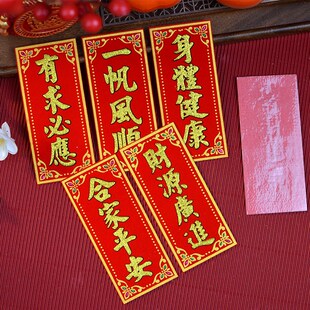 有求必應
一帆風順
身體健康
合家平安
財源廣進